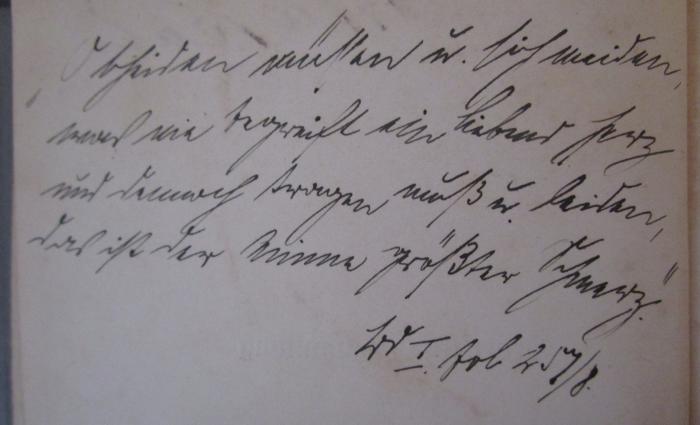 „Scheiden müssen u. sich meiden,
was nie begreift ein liebend Herz
und dennoch tragen muß u. leiden,
das ist der Minne größter Schmerz."
Bd I. fol 257/8.